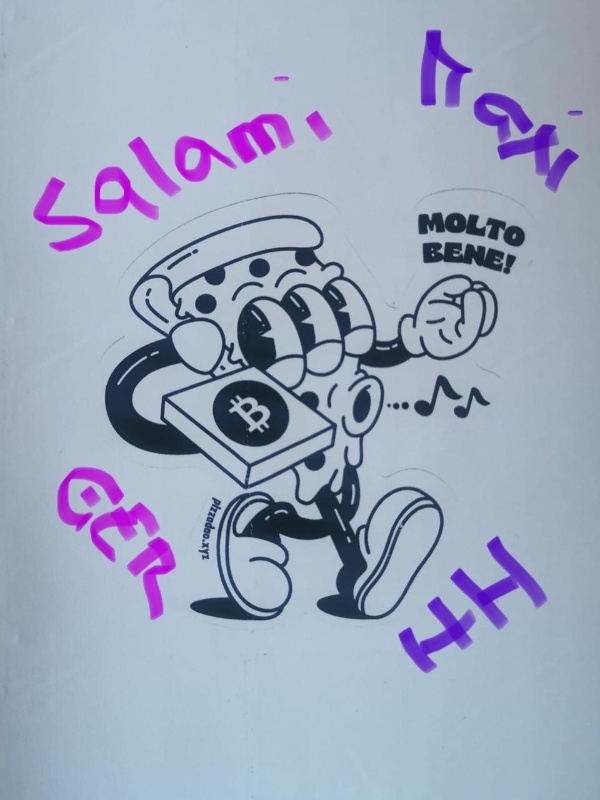 Salami
Maxi
MOLTO
BENE!
₿
pizzadao.xyz
GER
HH